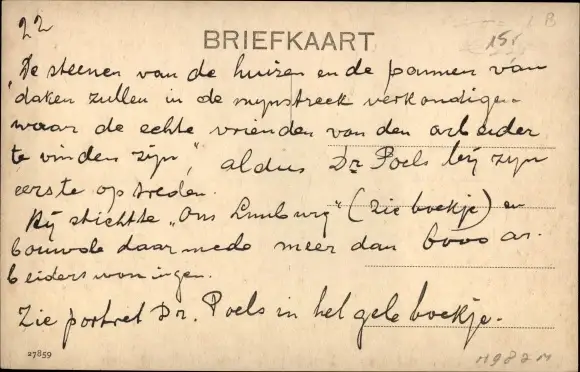 22
1 B
15,-
BRIEFKAART
"De steenen van de huizen en de pannen van
daken zullen in de mynstreek verkondigen
waar de echte vrienden van den arbeider
te vinden zyn", aldus Dr. Poels by zyn
eerste optreden.
Hy stichtte "Ons Limburg" (zie boekje) en
bouwde daarmede meer dan 6000 ar-
beiderswoningen.
Zie portret Dr. Poels in het gele boekje.
27859